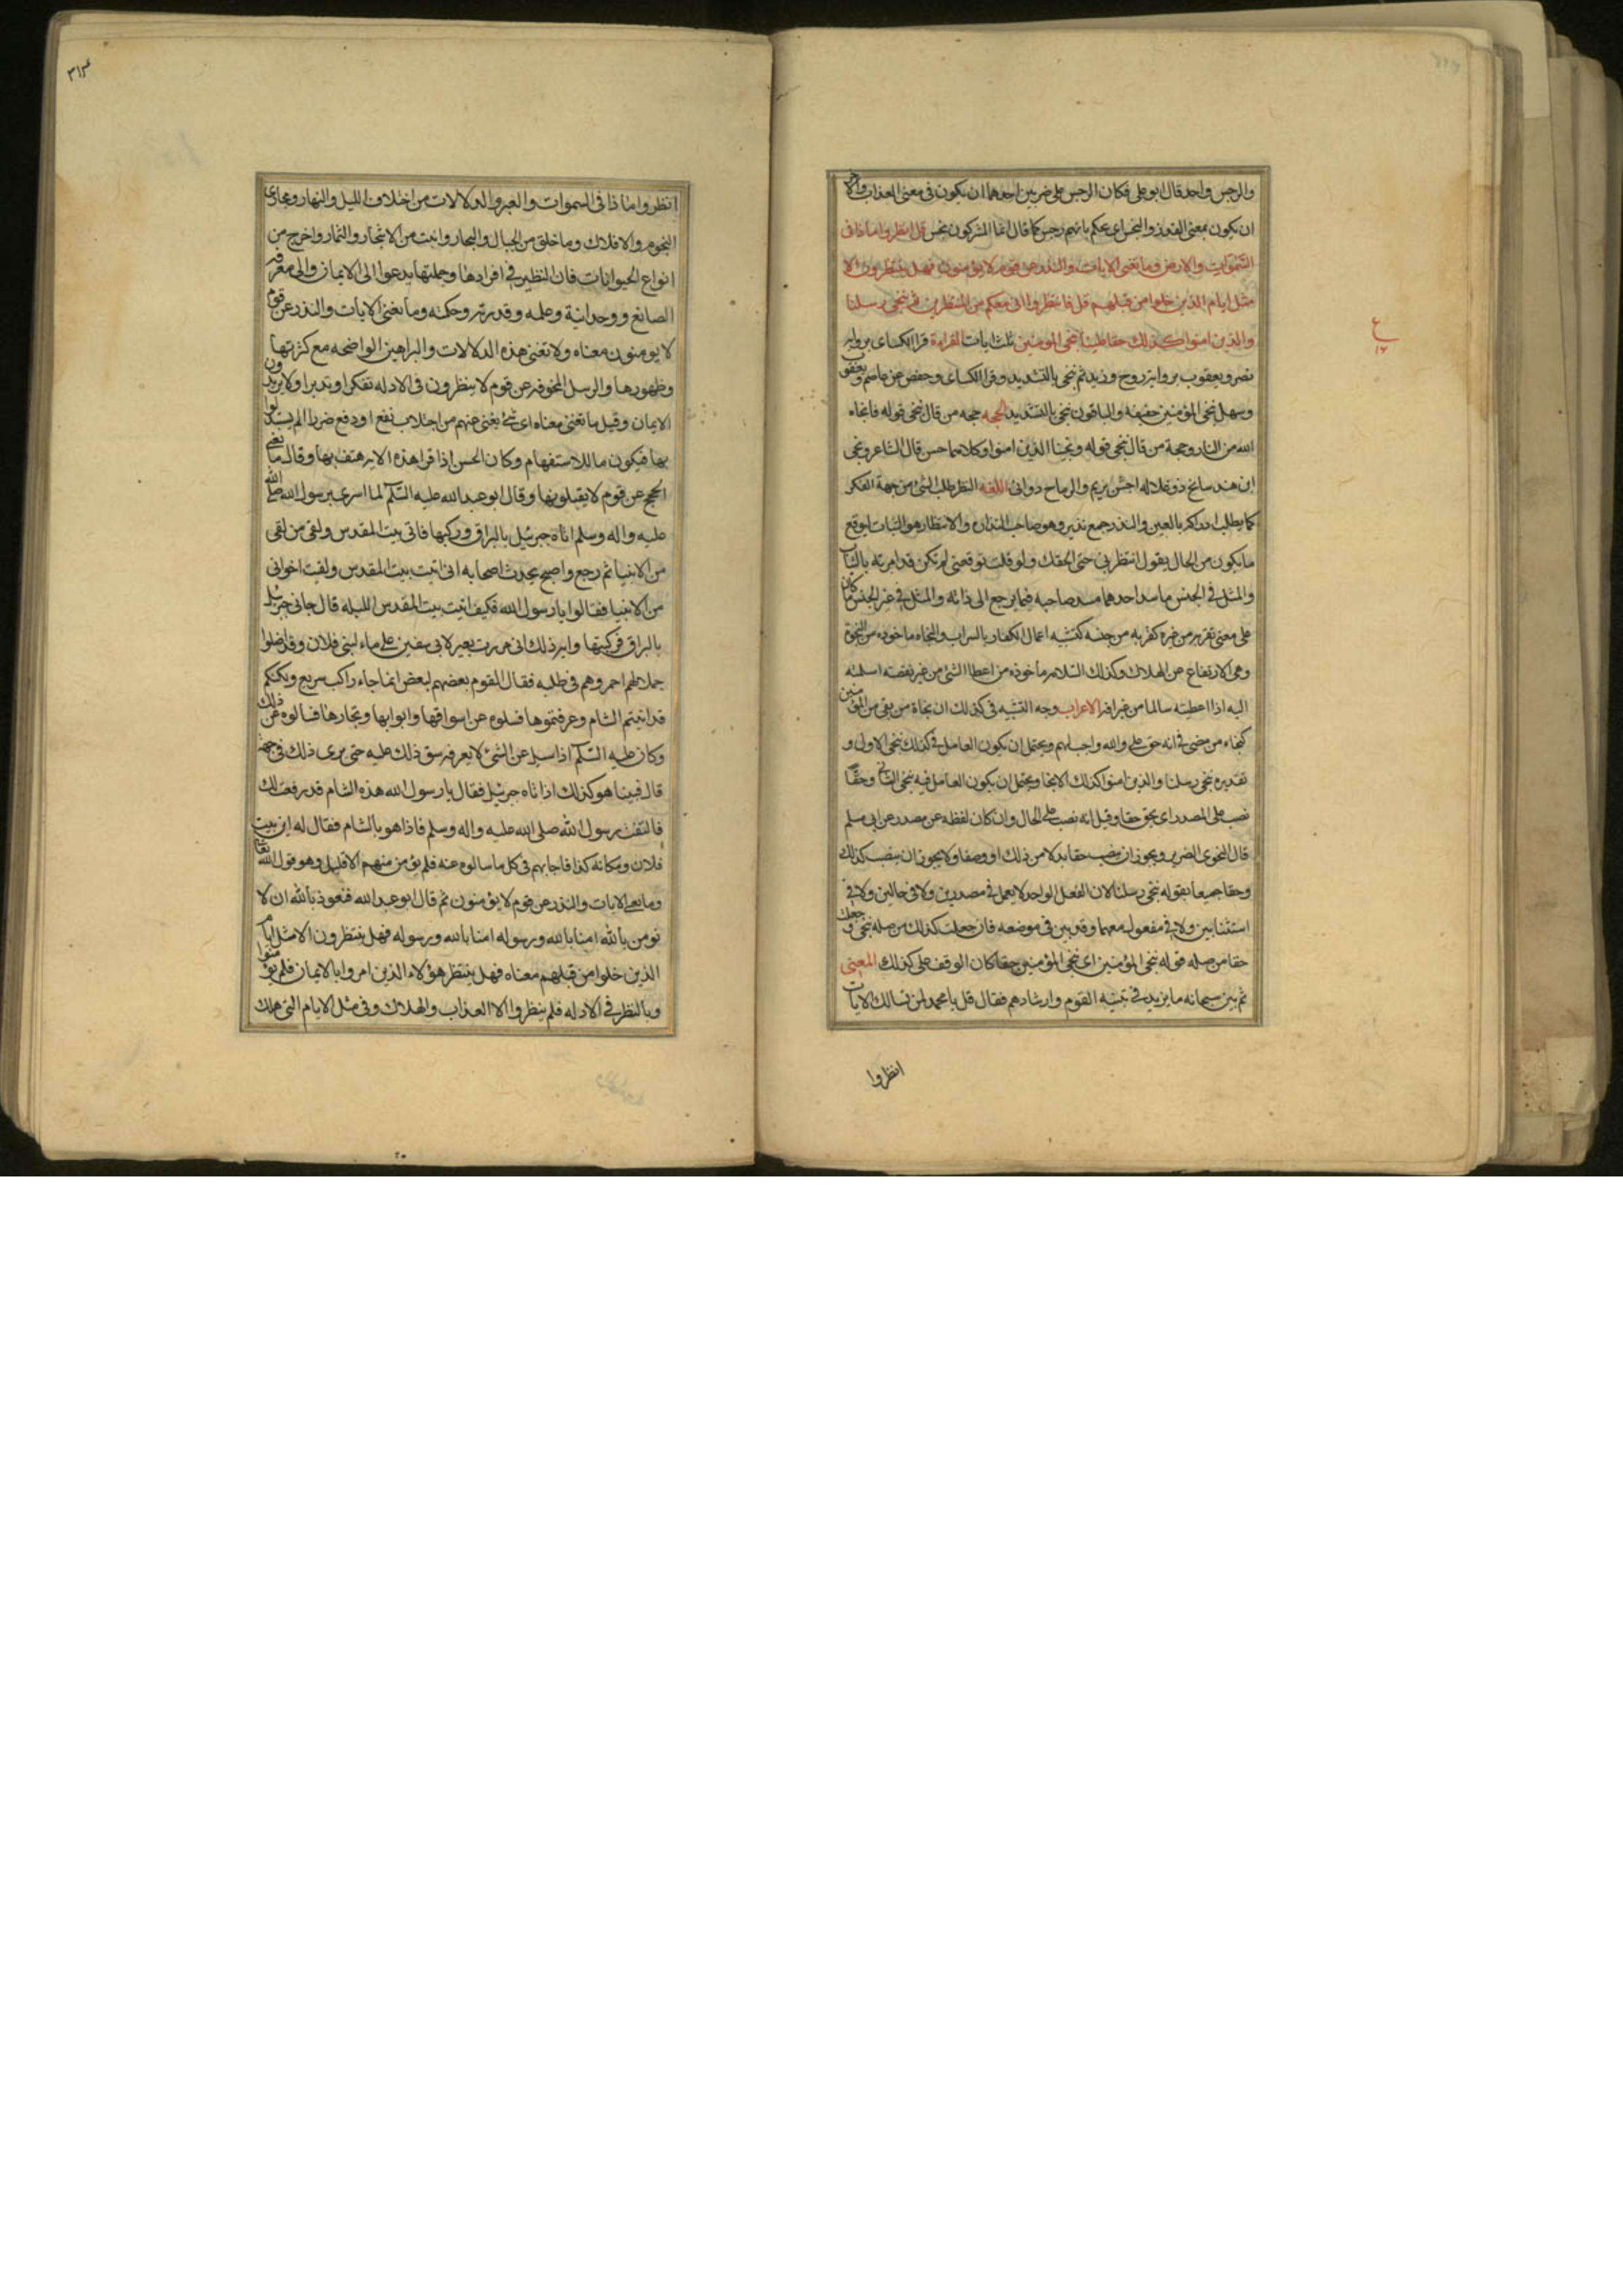 والرجس واحد قال ابو على فكان الرجس على ضربين احدهما ان يكون فى معنى العذاب والاخر
ان يكون بمعنى القذر والنجس اى يحكم بانهم رجس كما قال انما المشركون نجس قل انظروا ماذا فى
السموات والارض وما تغنى الايات والنذر عن قوم لا يؤمنون فهل ينتظرون الا
مثل ايام الذين خلوا من قبلهم قل فانتظروا انى معكم من المنتظرين ثم ننجى رسلنا
والذين امنوا كذلك حقا علينا ننجى المؤمنين ثلث ايات القراءة قرا الكساى بروايه
نصر ويعقوب بروايه روح وزيد ثم ننجى بالتشديد وقرا الكساى وحفص عن عاصم ويعقوب
وسهل ننجى المؤمنين خفيفه والباقون ننجى بالتشديد الحجه حجه من قال ننجى قوله فانجاه
الله من النار وحجة من قال ننجى قوله ونجينا الذين امنوا وكلاهما حسن قال الشاعر ونجى
ابن هند سابح ذو علاله اجش هزيم والرماح دوانى اللغه النظر طلب الشئ من جهة الفكر
كما يطلب ادراكه بالعين والنذر جمع نذير وهو صاحب النذاره والانتظار هو الثبات لتوقع
ما يكون من الحال يقول انتظرنى حتى الحقك ولو قلت توقعنى لم تكن قد امرته بالثبات
والمثل فى الجنس ما سد احدهما مسد صاحبه فيما يرجع الى ذاته والمثل فى غير الجنس ما كان
على معنى يقربه من غيره كقربه من جنسه كتشبيه اعمال الكفار بالسراب والنجاه ماخوذه من النجوة
وهى الارتفاع عن الهلاك وكذلك السلامه ماخوذه من اعطا الشئ من غير نقيصه اسلمته
اليه اذا اعطيته سالما من غير افه الاعراب وجه التشبيه فى كذلك ان نجاة من بقى من المؤمنين
كنجاه من مضى فى انه حق على والله واجب لهم ويحتمل ان يكون العامل فى كذلك ننجى الاول و
تقديره ننجى رسلنا والذين امنوا كذلك الانجا ويحتمل ان يكون العامل فيه ننجى الثانى وحقا
نصب على المصدر اى يحق حقا وقيل انه نصب على الحال وان كان لفظه عن مصدر عن ابى مسلم
قال النحوى الضرير ويجوز ان ينصب حقا بدلا من ذلك او وصفا ولا يجوز ان ينصب كذلك
وحقا جميعا بقوله ننجى رسلنا لان الفعل الواحد لا يعمل فى مصدرين ولا فى حالين ولا فى
استثنايين ولا فى مفعول معهما وقد بين فى موضعه فان جعلت كذلك من صله ننجى وجعلت
حقا من صله قوله ننجى المؤمنين اى ننجى المؤمنين حقا كان الوقف على كذلك المعنى
ثم بين سبحانه ما يزيد فى تنبيه القوم وارشادهم فقال قل يا محمد لمن تسالك الايات
انظروا
ع
١٦
٣١٣
انظروا ماذا فى السموات والعبر والدلالات من اختلاف الليل والنهار ومجارى
النجوم والافلاك وما خلق من الجبال والبحار وانبت من الاشجار والثمار واخرج من
انواع الحيوانات فان النظير فى افرادها وجملتها يدعوا الى الايمان والى معرفه
الصانع ووحدانية وعلمه وقدرته وحكمه وما تغنى الايات والنذر عن قوم
لا يومنون معناه ولا تغنى هذه الدلالات والبراهين الواضحه مع كثرتها
وظهورها والرسل المخوفه عن قوم لا ينظرون فى الادله تفكرا وتدبرا ولا يريدون
الايمان وقيل ما تغنى معناه اى شئ يغنى عنهم من اجتلاب نفع او دفع ضرر اذا لم يستدلوا
بها فيكون ما للاستفهام وكان الحسن اذا قرا هذه الايه هتف بها وقال ما تغنى
الحجج عن قوم لا يقبلونها وقال ابو عبد الله عليه السلام لما اسرى برسول الله صلى الله
عليه واله وسلم اتاه جبرئيل بالبراق وركبها فاتى بيت المقدس ولقى من لقى
من الانبيا ثم رجع واصبح يحدث اصحابه انى اتيت بيت المقدس ولقيت اخوانى
من الانبيا فقالوا يا رسول الله فكيف اتيت بيت المقدس الليله قال جانى جبرئيل
بالبراق فركبتها وايه ذلك انى مررت بعير لابى سفين على ماء لبنى فلان وقد اضلوا
جملا لهم احمر وهم فى طلبه فقال القوم بعضهم لبعض انما جاء راكب سريع ولكنكم
قد اتيتم الشام وعرفتموها فسلوه عن اسواقها وابوابها وتجارها فسالوه عن ذلك
وكان عليه السلم اذا سيل عن الشئ لا يعرفه شق ذلك عليه حتى يرى ذلك فى وجهه
قال فبينا هو كذلك اذ اتاه جبرئيل فقال يا رسول الله هذه الشام قد رفعت لك
فالتفت رسول الله صلى الله عليه واله وسلم فاذا هو بالشام فقال له اين بيت
فلان ومكانه كذا فاجابهم فى كل ما سالوه عنه فلم يؤمن منهم الا قليل وهو قول الله تعا
وما تغنى الايات والنذر عن قوم لا يؤمنون ثم قال ابو عبد الله فنعوذ بالله ان لا
نومن بالله امنا بالله ورسوله امنا بالله ورسوله فهل ينتظرون الا مثل ايام
الذين خلوا من قبلهم معناه فهل ينتظر هؤلاء الذين امروا بالايمان فلم يؤمنوا
وبالنظر فى الادله فلم ينظروا الا العذاب والهلاك وفى مثل الايام التى هلك